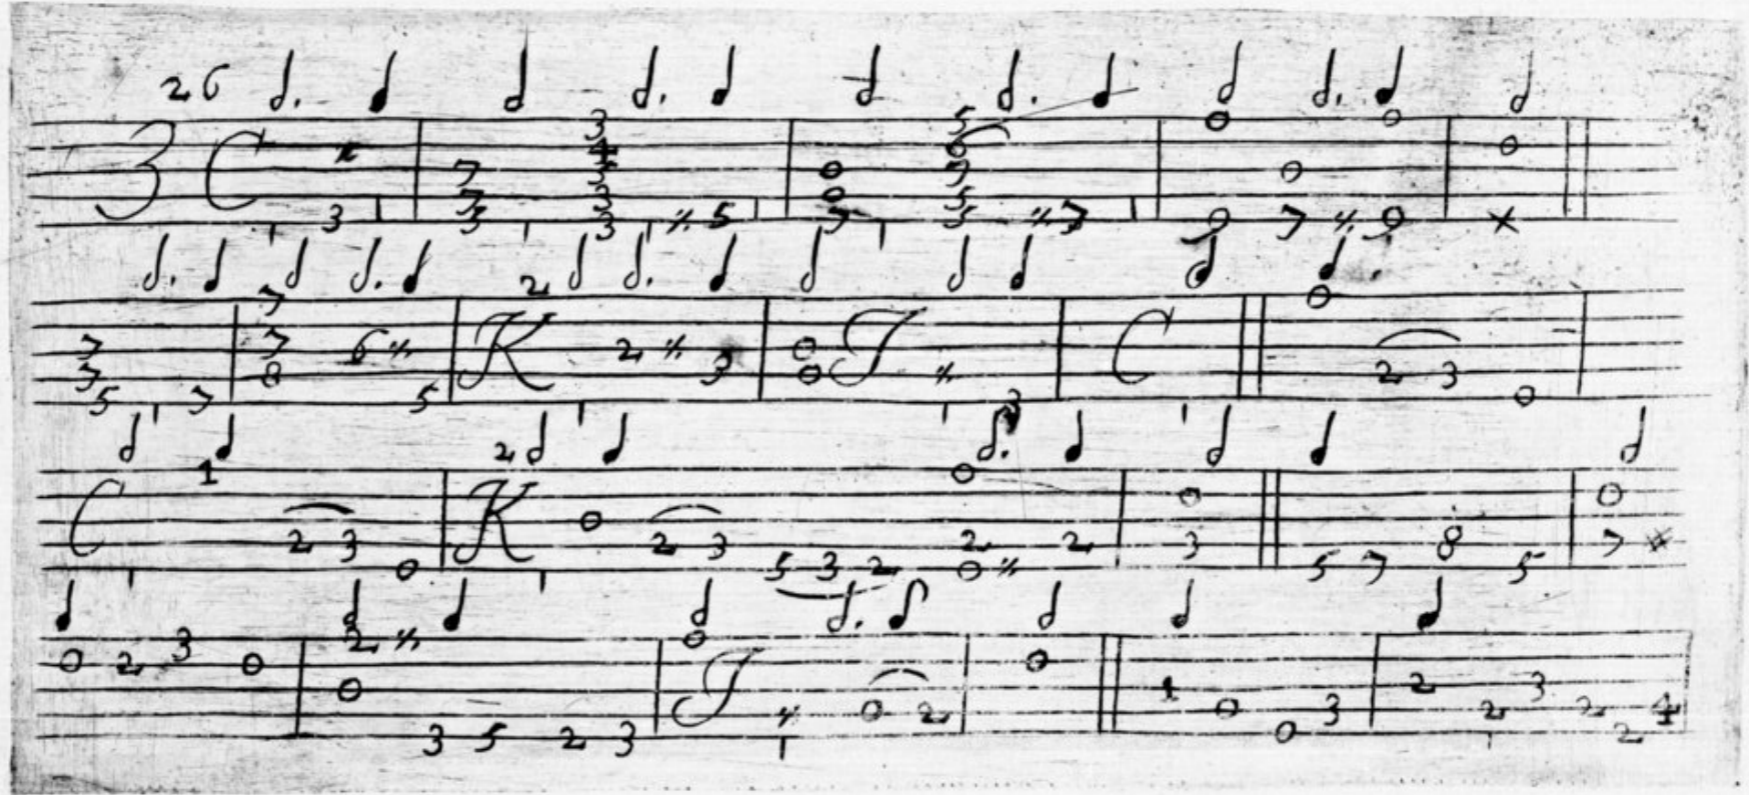 26
3 C 3 7 7 5 3 4 3 3 3 5 0 0 7 5 6 7 5 5 7 0 9 0 7 0 9 0 x
7 7 5 7 7 7 8 6 5 2 K 2 3 0 0 I 3 C 0 2 3 0
C 1 2 3 0 2 K 0 2 3 5 3 2 0 2 0 2 0 3 5 7 8 5 0 7
0 2 3 0 2 0 3 5 2 3 0 I 0 2 0 1 0 0 3 2 2 3 2 2 4